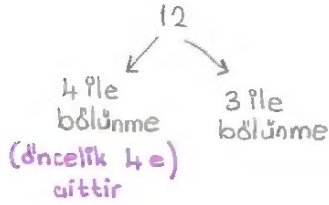 12
4 ile
bölünme
(öncelik 4e)
aittir
3 ile
bölünme